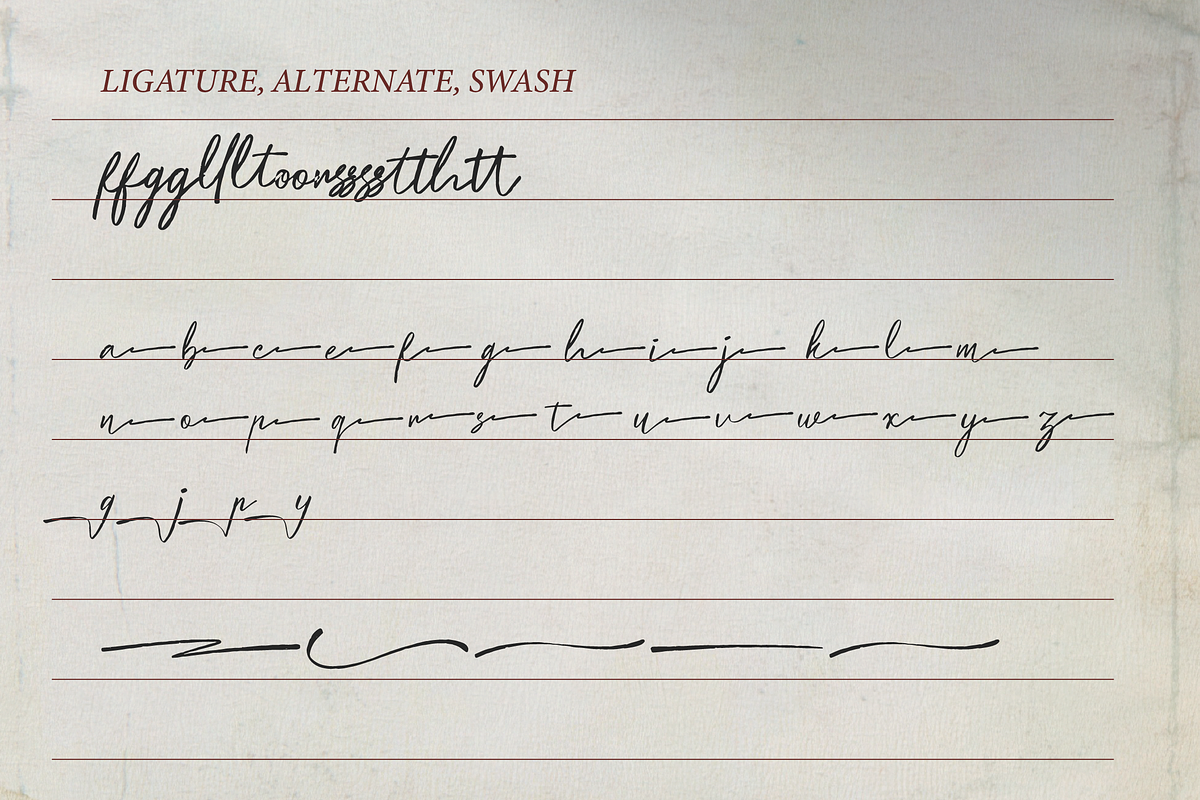 LIGATURE, ALTERNATE, SWASH
ffggllltoorssssttthtt
a b c e f g h i j k l m
n o p q r s t u v w x y z
g j p y